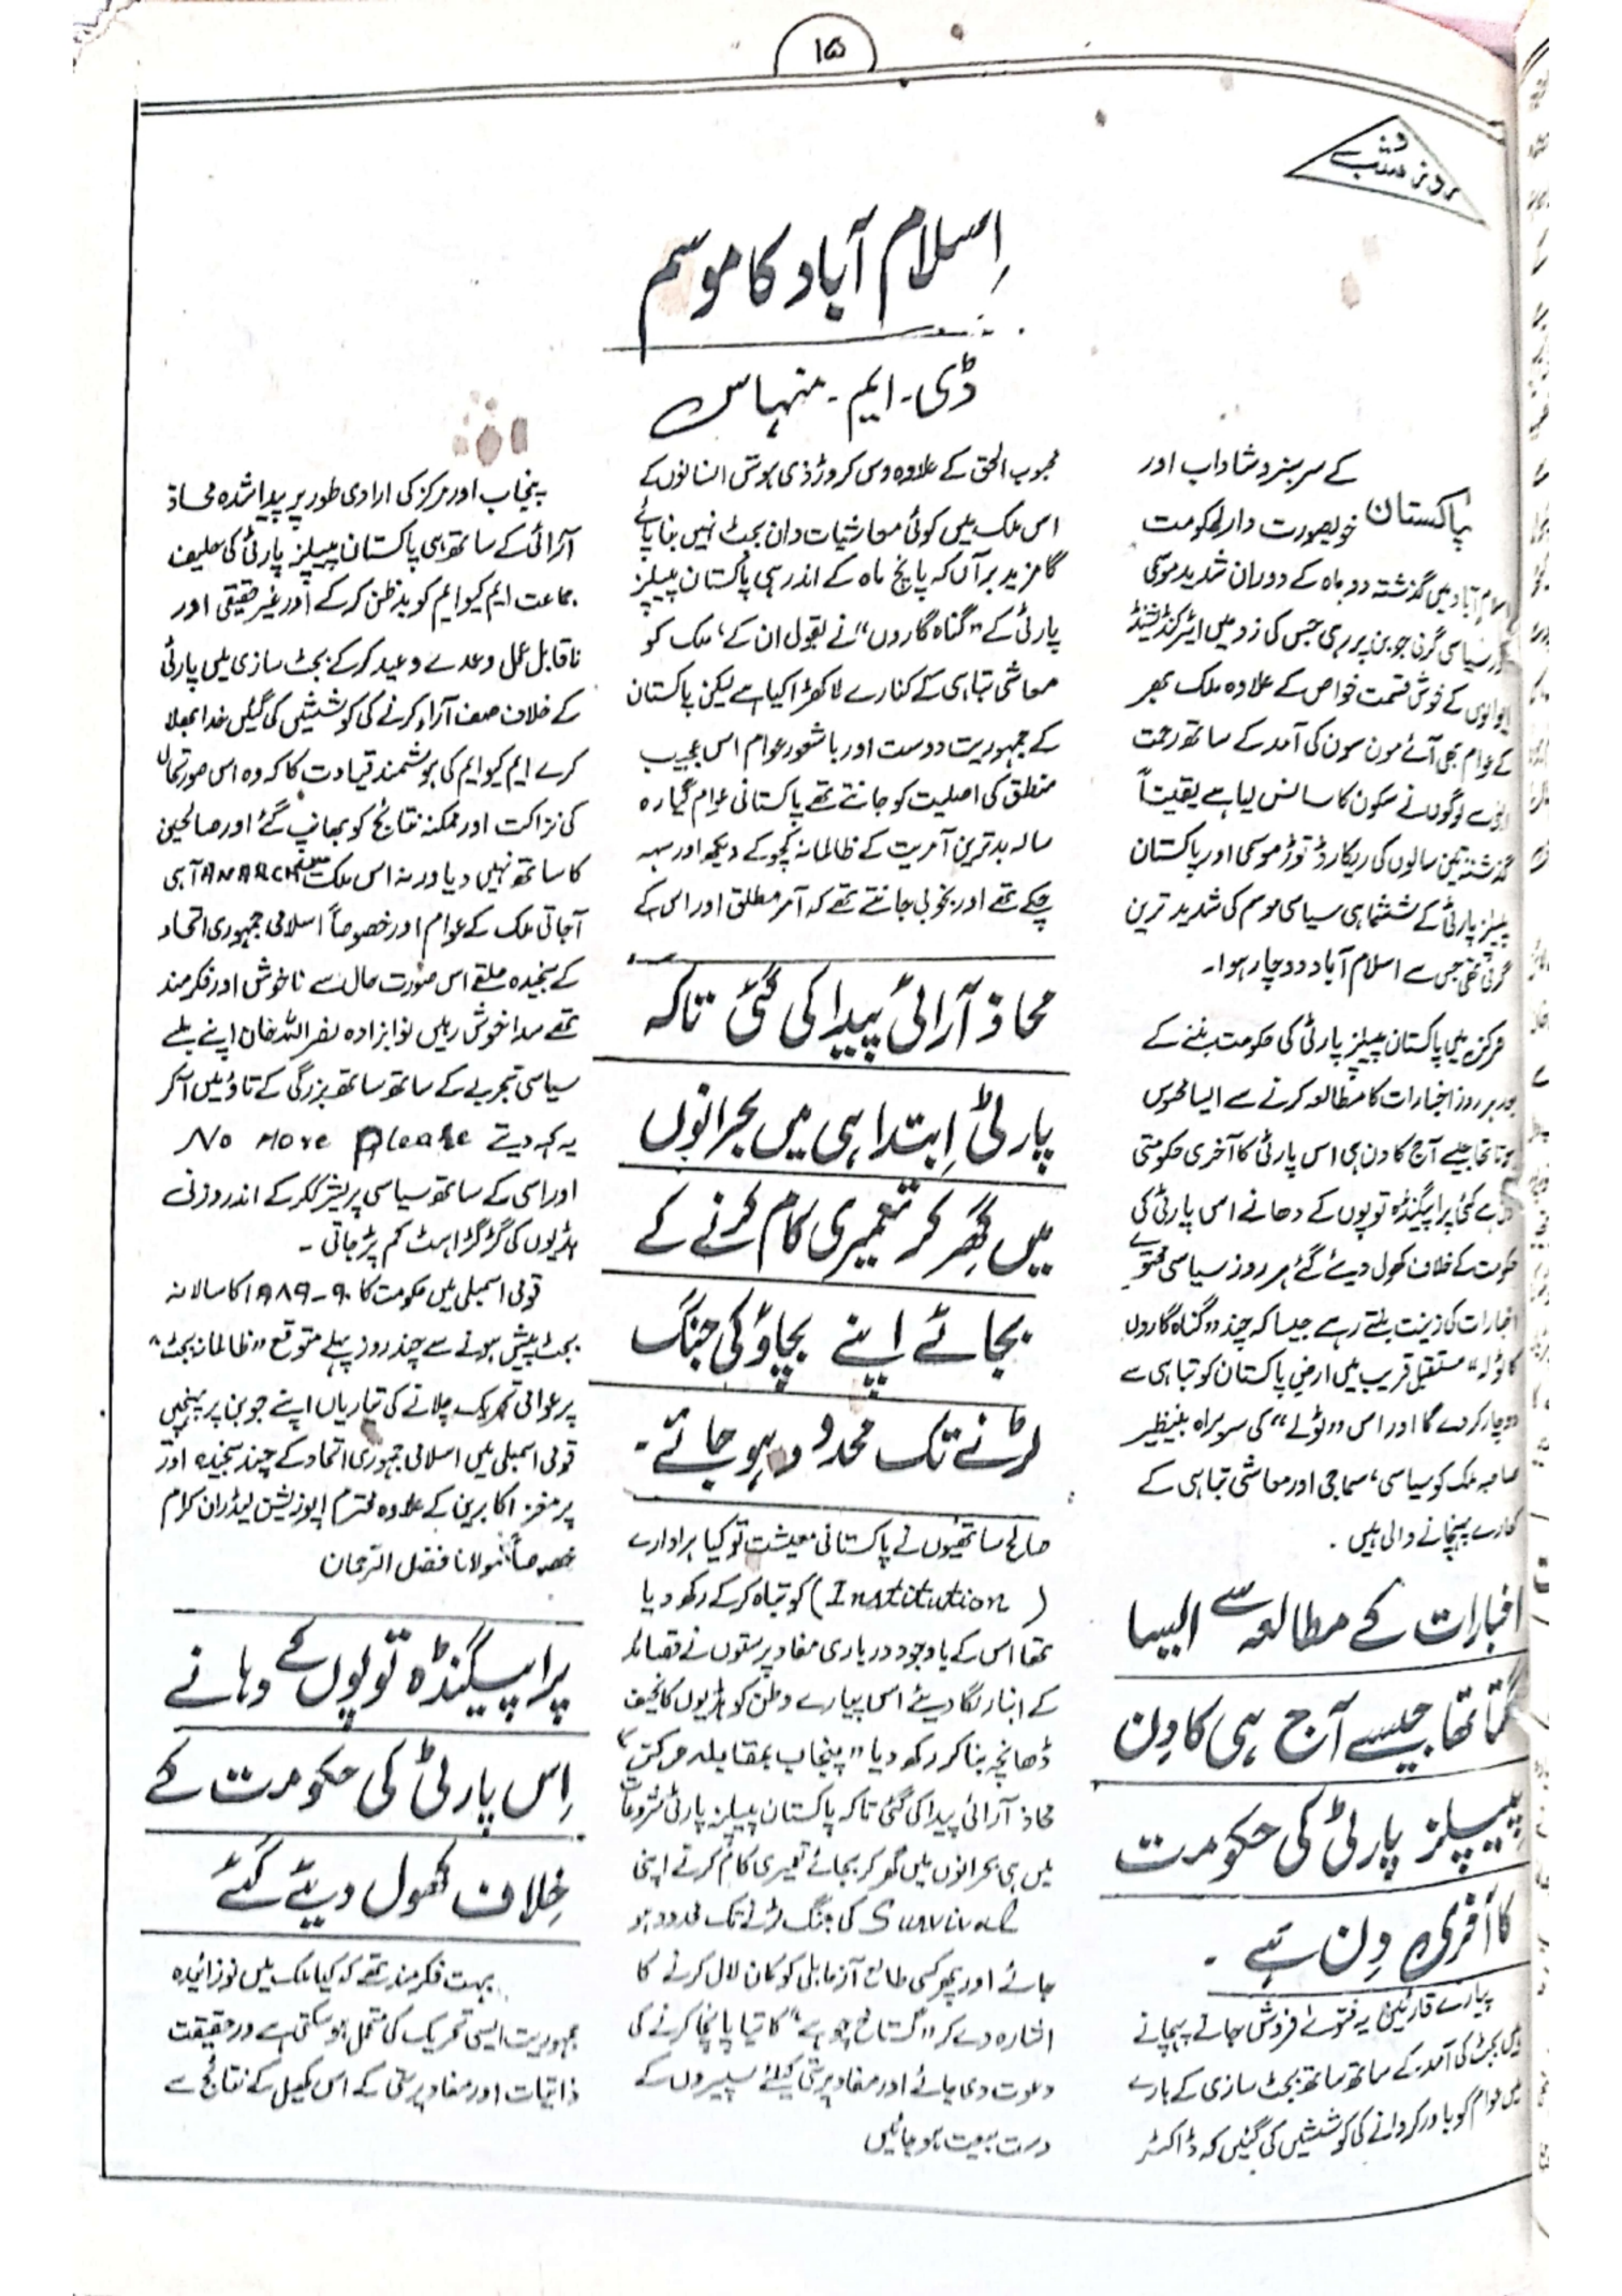 ۱۵
روز و شب
اِسلام آباد کا موسم
ڈی۔ ایم۔ منہاس
کے سرسبز و شاداب اور
پاکستان خوبصورت دارلحکومت
اسلام آباد میں گذشتہ دو ماہ کے دوران شدید موسمی
اور سیاسی گرمی جوبن پر رہی جس کی زد میں ایئرکنڈیشنڈ
ایوانوں کے خوش قسمت خواص کے علاوہ ملک بھر
کے عوام بھی آئے مون سون کی آمد کے ساتھ رحمت
لوگوں نے سکون کا سانس لیا ہے یقیناً
گذشتہ تین سالوں کی ریکارڈ توڑ موسمی اور پاکستان
پیپلز پارٹی کے ششماہی سیاسی موسم کی شدید ترین
گرمی تھی جس سے اسلام آباد دوچار ہوا۔
مرکز میں پاکستان پیپلز پارٹی کی حکومت بننے کے
بعد ہر روز اخبارات کا مطالعہ کرنے سے ایسا محسوس
ہوتا تھا جیسے آج کا دن ہی اس پارٹی کا آخری حکومتی
ہے کئی پراپیگنڈہ توپوں کے دھانے اس پارٹی کی
حکومت کے خلاف کھول دیئے گئے ہر روز سیاسی فتوے
اخبارات کی زینت بنتے رہے جیسا کہ چند "گناہ گاروں
کا ٹولہ" مستقبل قریب میں ارضِ پاکستان کو تباہی سے
دوچار کر دے گا اور اس "ٹولے" کی سربراہ بینظیر
صاحبہ ملک کو سیاسی، سماجی اور معاشی تباہی کے
کنارے پہنچانے والی ہیں۔
اخبارات کے مطالعہ سے ایسا
لگتا تھا جیسے آج ہی کا دِن
پیپلز پارٹی کی حکومت
کا آخری دِن ہے۔
پیارے قارئین یہ فتویٰ فروش جانے پہچانے
ہیں بجٹ کی آمد کے ساتھ ساتھ بجٹ سازی کے بارے
میں عوام کو باور کروانے کی کوششیں کی گئیں کہ ڈاکٹر
محبوب الحق کے علاوہ دس کروڑ ذی ہوش انسانوں کے
اس ملک میں کوئی معاشیات دان بجٹ نہیں بنا پائے
گا مزید برآں کہ پانچ ماہ کے اندر ہی پاکستان پیپلز
پارٹی کے "گناہ گاروں" نے بقول ان کے، ملک کو
معاشی تباہی کے کنارے لا کھڑا کیا ہے لیکن پاکستان
کے جمہوریت دوست اور باشعور عوام اس عجیب
منطق کی اصلیت کو جانتے تھے پاکستانی عوام گیارہ
سالہ بدترین آمریت کے ظالمانہ کچوکے دیکھ اور سہہ
چکے تھے اور بخوبی جانتے تھے کہ آمر مطلق اور اس کے
محاذ آرائی پیدا کی گئی تاکہ
پارٹی اِبتدا ہی میں بحرانوں
میں گھِر کر تعمیری کام کرنے کے
بجائے اپنے بچاؤ کی جنگ
لڑنے تک محدود ہو جائے۔
صالح ساتھیوں نے پاکستانی معیشت تو کیا ہر ادارے
(Institution) کو تباہ کر کے رکھ دیا
تھا اس کے باوجود درباری مفاد پرستوں نے قصائد
کے انبار لگا دیئے اس پیارے وطن کو ہڈیوں کا نحیف
ڈھانچہ بنا کر رکھ دیا "پنجاب بمقابلہ مرکز"
محاذ آرائی پیدا کی گئی تاکہ پاکستان پیپلز پارٹی شروعات
میں ہی بحرانوں میں گھر کر بجائے تعمیری کام کرنے اپنی
Survival کی جنگ لڑنے تک محدود ہو
جائے اور پھر کسی طالع آزما بلی کو کان لال کرنے کا
اشارہ دے کر "گستاخ چوہے" کا تیا پانچا کرنے کی
دعوت دی جائے اور مفاد پرستی کیلئے سپیروں کے
دست بیعت ہو جائیں
پنجاب اور مرکز کی ارادی طور پر پیدا شدہ محاذ
آرائی کے ساتھ ہی پاکستان پیپلز پارٹی کی حلیف
جماعت ایم کیو ایم کو بدظن کر کے اور غیر حقیقی اور
ناقابل عمل وعدے وعید کر کے بجٹ سازی میں پارٹی
کے خلاف صف آراء کرنے کی کوششیں کی گئیں خدا بھلا
کرے ایم کیو ایم کی ہوشمند قیادت کا کہ وہ اس صورتحال
کی نزاکت اور ممکنہ نتائج کو بھانپ گئے اور صالحین
کا ساتھ نہیں دیا ورنہ اس ملک میں ANARCHY آ ہی
آجاتی ملک کے عوام اور خصوصاً اسلامی جمہوری اتحاد
کے سنجیدہ حلقے اس صورت حال سے ناخوش اور فکر مند
تھے سدا خوش رہیں نوابزادہ نصر اللہ خان اپنے لمبے
سیاسی تجربے کے ساتھ ساتھ بزرگی کے تاؤ میں آ کر
یہ کہہ دیتے No More Please
اور اسی کے ساتھ سیاسی پریشر ککر کے اندر وزنی
ہڈیوں کی گڑگڑاہٹ کم پڑ جاتی۔
قومی اسمبلی میں حکومت کا ۹۰-۱۹۸۹ کا سالانہ
بجٹ پیش ہونے سے چند روز پہلے متوقع "ظالمانہ بجٹ"
پر عوامی تحریک چلانے کی تیاریاں اپنے جوبن پر پہنچیں
قومی اسمبلی میں اسلامی جمہوری اتحاد کے چند سنجیدہ اور
پرمغز اکابرین کے علاوہ محترم اپوزیشن لیڈران کرام
خصوصاً مولانا فضل الرحمان
پراپیگنڈہ توپوں کے دہانے
اِس پارٹی کی حکومت کے
خِلاف کھول دیئے گئے
بہت فکر مند تھے کہ کیا ملک میں نوزائیدہ
جمہوریت ایسی تحریک کی متحمل ہو سکتی ہے در حقیقت
ذاتیات اور مفاد پرستی کے اس کھیل کے نتائج سے